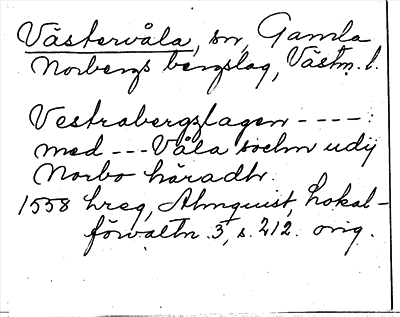 Västervåla, sn, Gamla
Norbergs bergslag, Västm. l.
Vestrabergzlagen ----:
med --- Våla sochn udij
Norbo häradh.
1558 hreg, Almquist, Lokal-
förvaltn. 3, s. 212. orig.